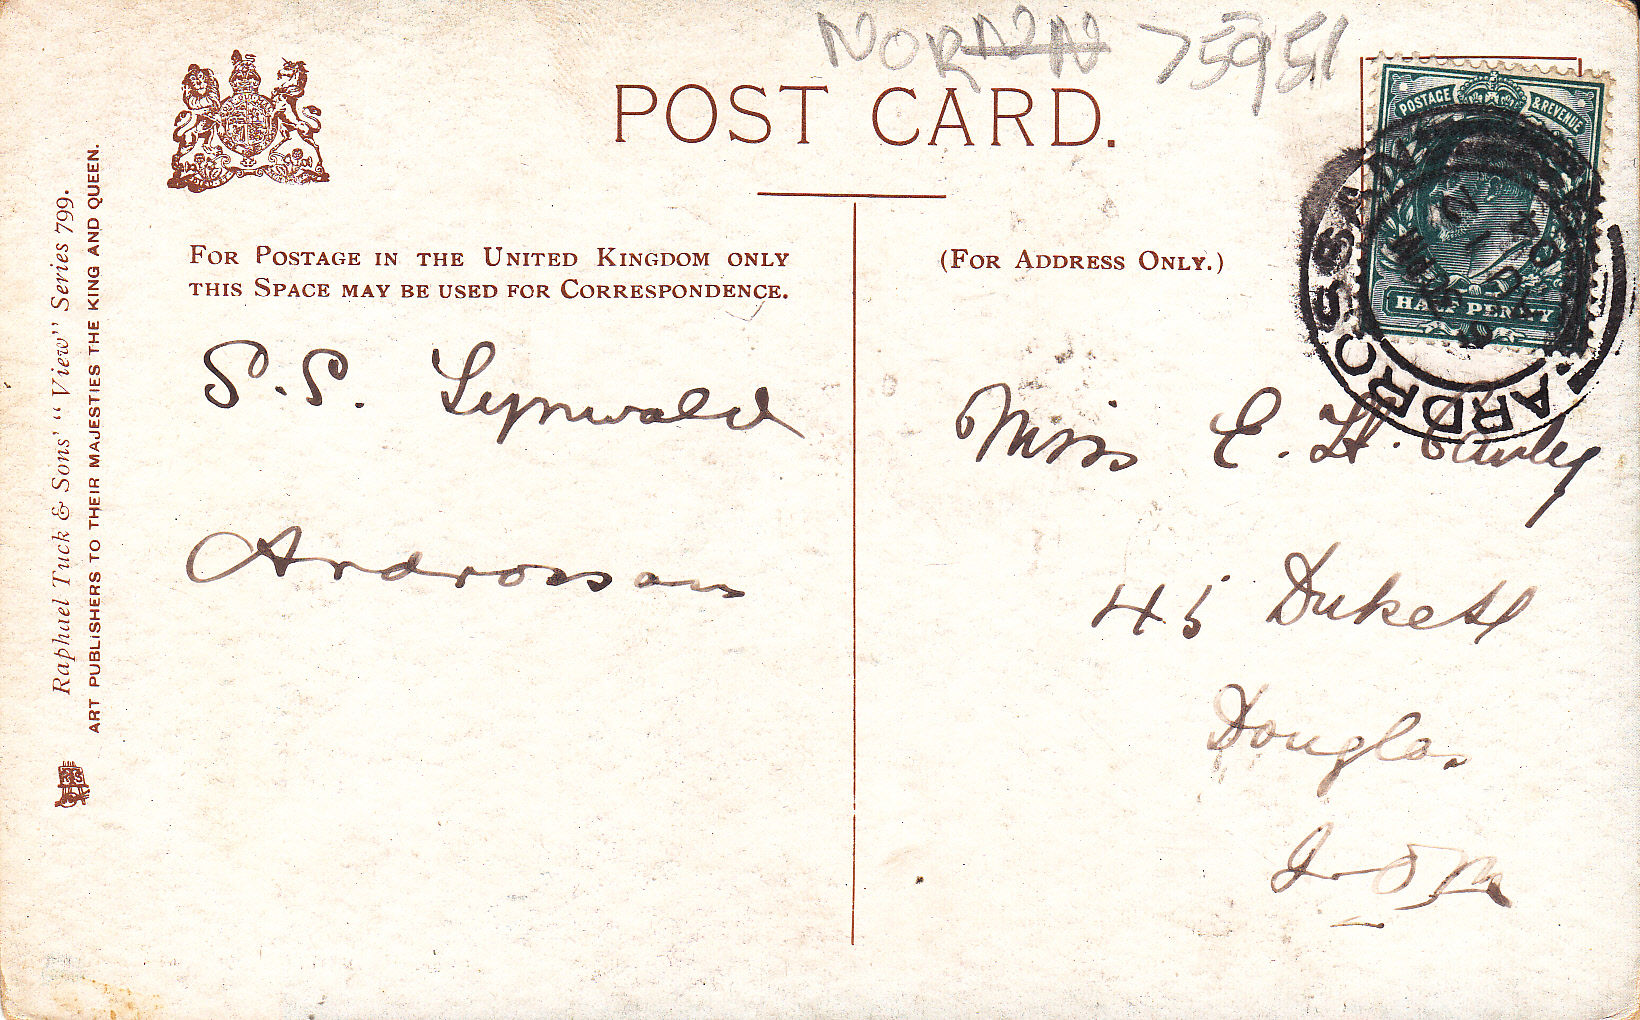 NORNRN 75951
POST CARD.
POSTAGE & REVENUE
HALF PENNY
ARDROSSAN
Raphael Tuck & Sons' "View" Series 799.
ART PUBLISHERS TO THEIR MAJESTIES THE KING AND QUEEN.
FOR POSTAGE IN THE UNITED KINGDOM ONLY
THIS SPACE MAY BE USED FOR CORRESPONDENCE.
(FOR ADDRESS ONLY.)
S.S. Tynwald
Ardrossan
Miss E. H.
45 Duke St
Douglas
I.O.M